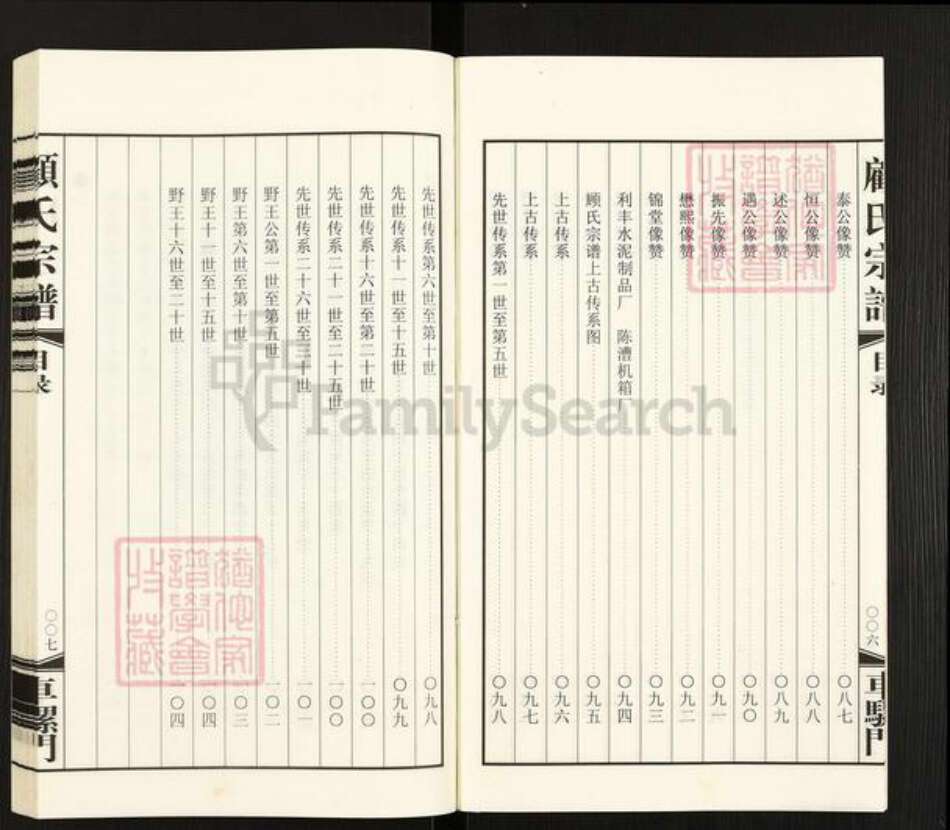 顧氏宗譜
目录
〇〇六
泰公像赞 〇八七
恒公像赞 〇八八
述公像赞 〇八九
遇公像赞 〇九〇
振先像赞 〇九一
懋熙像赞 〇九二
锦堂像赞 〇九三
利丰水泥制品厂 陈漕机箱厂 〇九四
顾氏宗谱上古传系图 〇九五
上古传系 〇九六
上古传系 〇九七
先世传系第一世至第五世 〇九八
先世传系第六世至第十世 〇九八
先世传系十一世至十五世 〇九九
先世传系十六世至第二十世 一〇〇
先世传系二十一世至二十五世 一〇〇
先世传系二十六世至三十世 一〇一
野王公第一世至第五世 一〇二
野王第六世至第十世 一〇三
野王十一世至十五世 一〇四
野王十六世至二十世 一〇四
顧氏宗譜
目录
〇〇七
FamilySearch